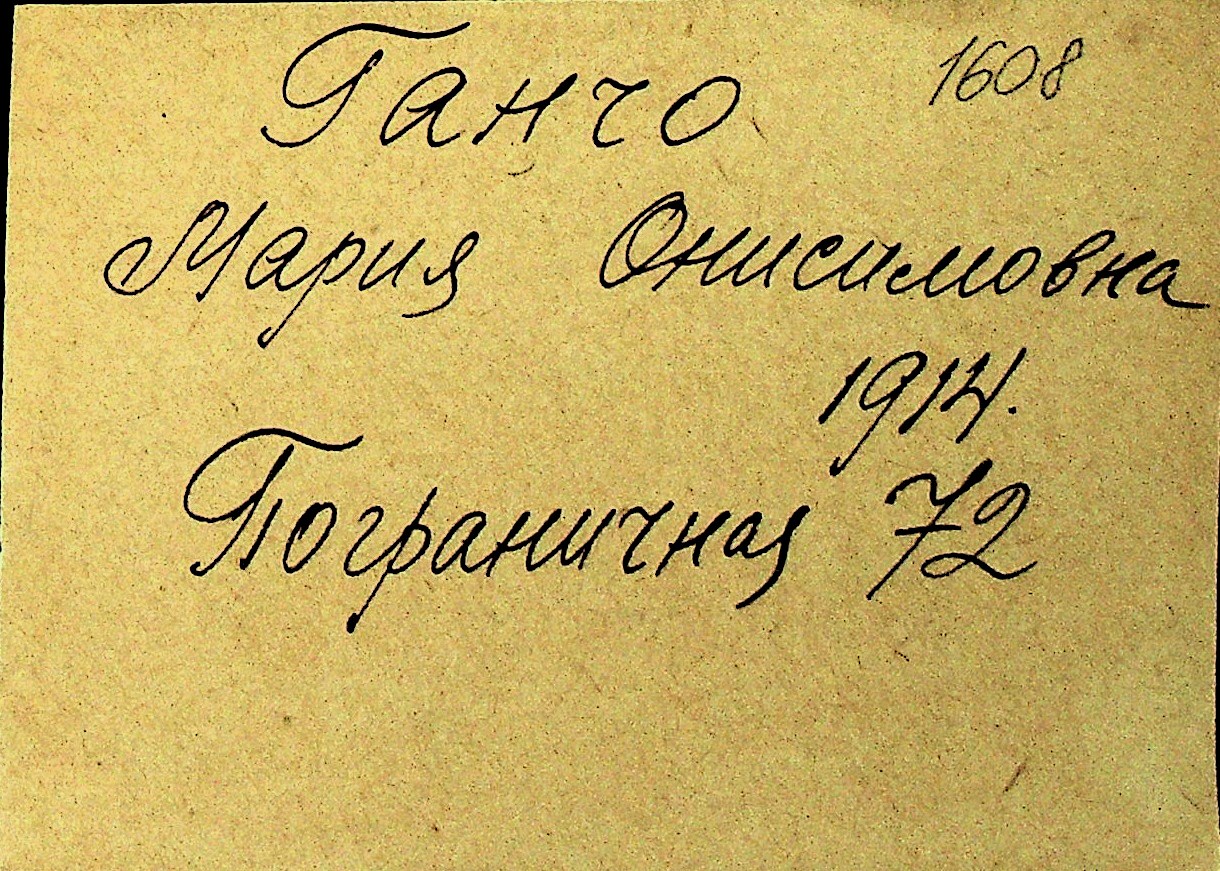 Ганчо 1608
Мария Онисимовна
1914.
Пограничная 72